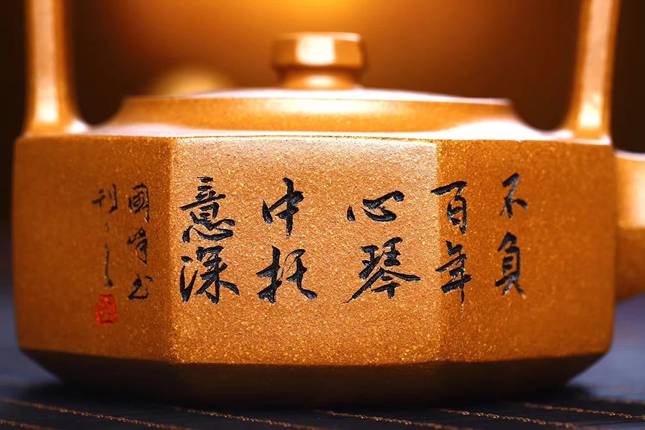 不負
百年
心琴
中托
意深
國峰书
刊之